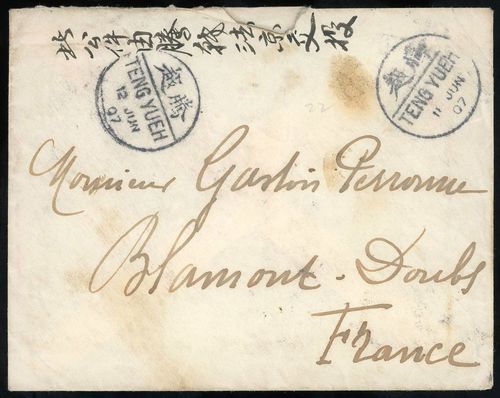 公件由騰
越騰
TENG YUEH
12 JUN
07
越騰
TENG YUEH
11 JUN
07
22
Monsieur Gaston Perronne
Blamont. Doubs
France